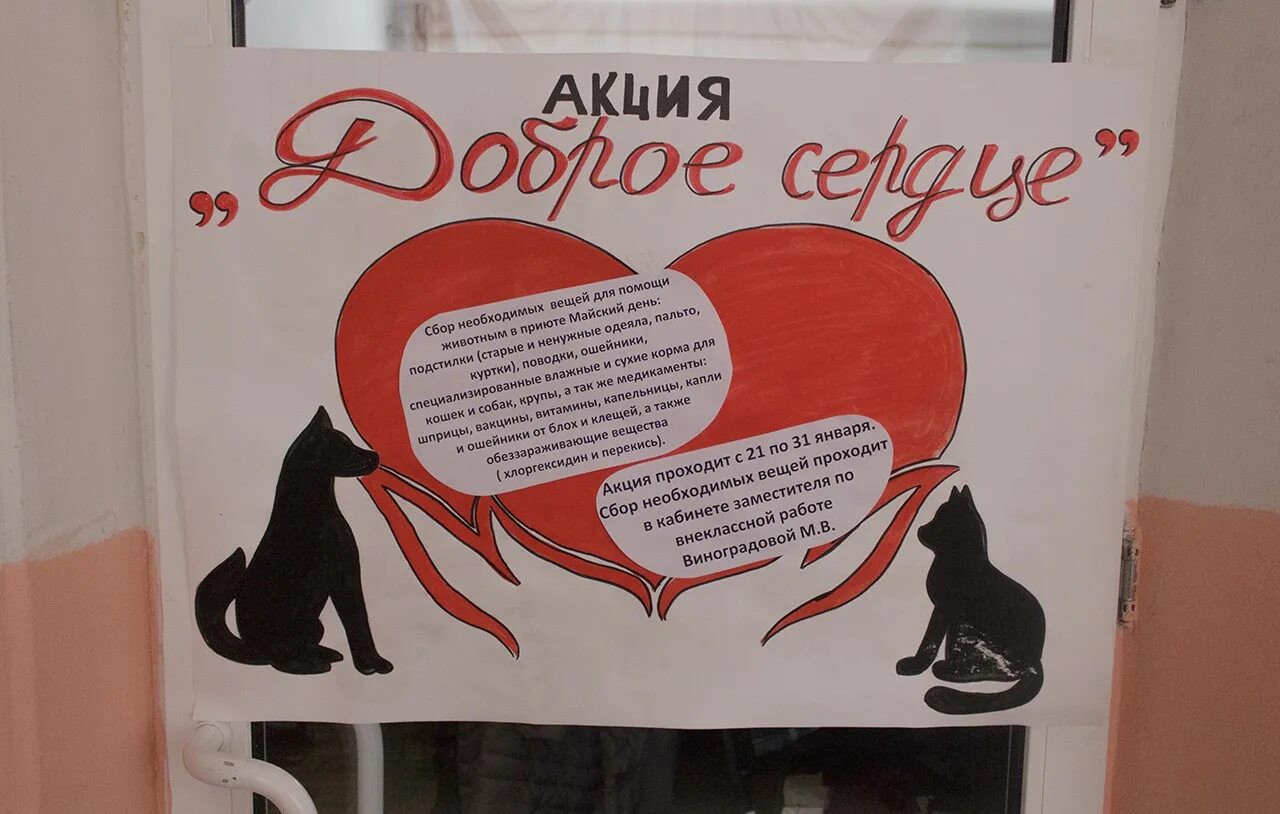 АКЦИЯ
„Доброе сердце”
Сбор необходимых вещей для помощи
животным в приюте Майский день:
подстилки (старые и ненужные одеяла, пальто,
куртки), поводки, ошейники,
специализированные влажные и сухие корма для
кошек и собак, крупы, а так же медикаменты:
шприцы, вакцины, витамины, капельницы, капли
и ошейники от блох и клещей, а также
обеззараживающие вещества
( хлоргексидин и перекись).
Акция проходит с 21 по 31 января.
Сбор необходимых вещей проходит
в кабинете заместителя по
внеклассной работе
Виноградовой М.В.